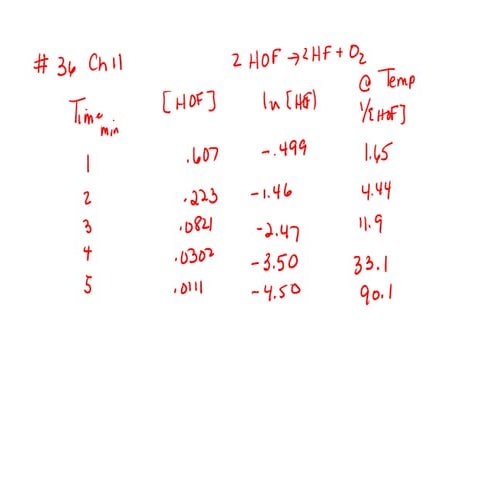 # 36 Ch11 2 HOF → 2HF + O2
@ Temp
Time min [HOF] ln [HOF] 1/[HOF]
1 .607 -.499 1.65
2 .223 -1.46 4.44
3 .0821 -2.47 11.9
4 .0302 -3.50 33.1
5 .0111 -4.50 90.1